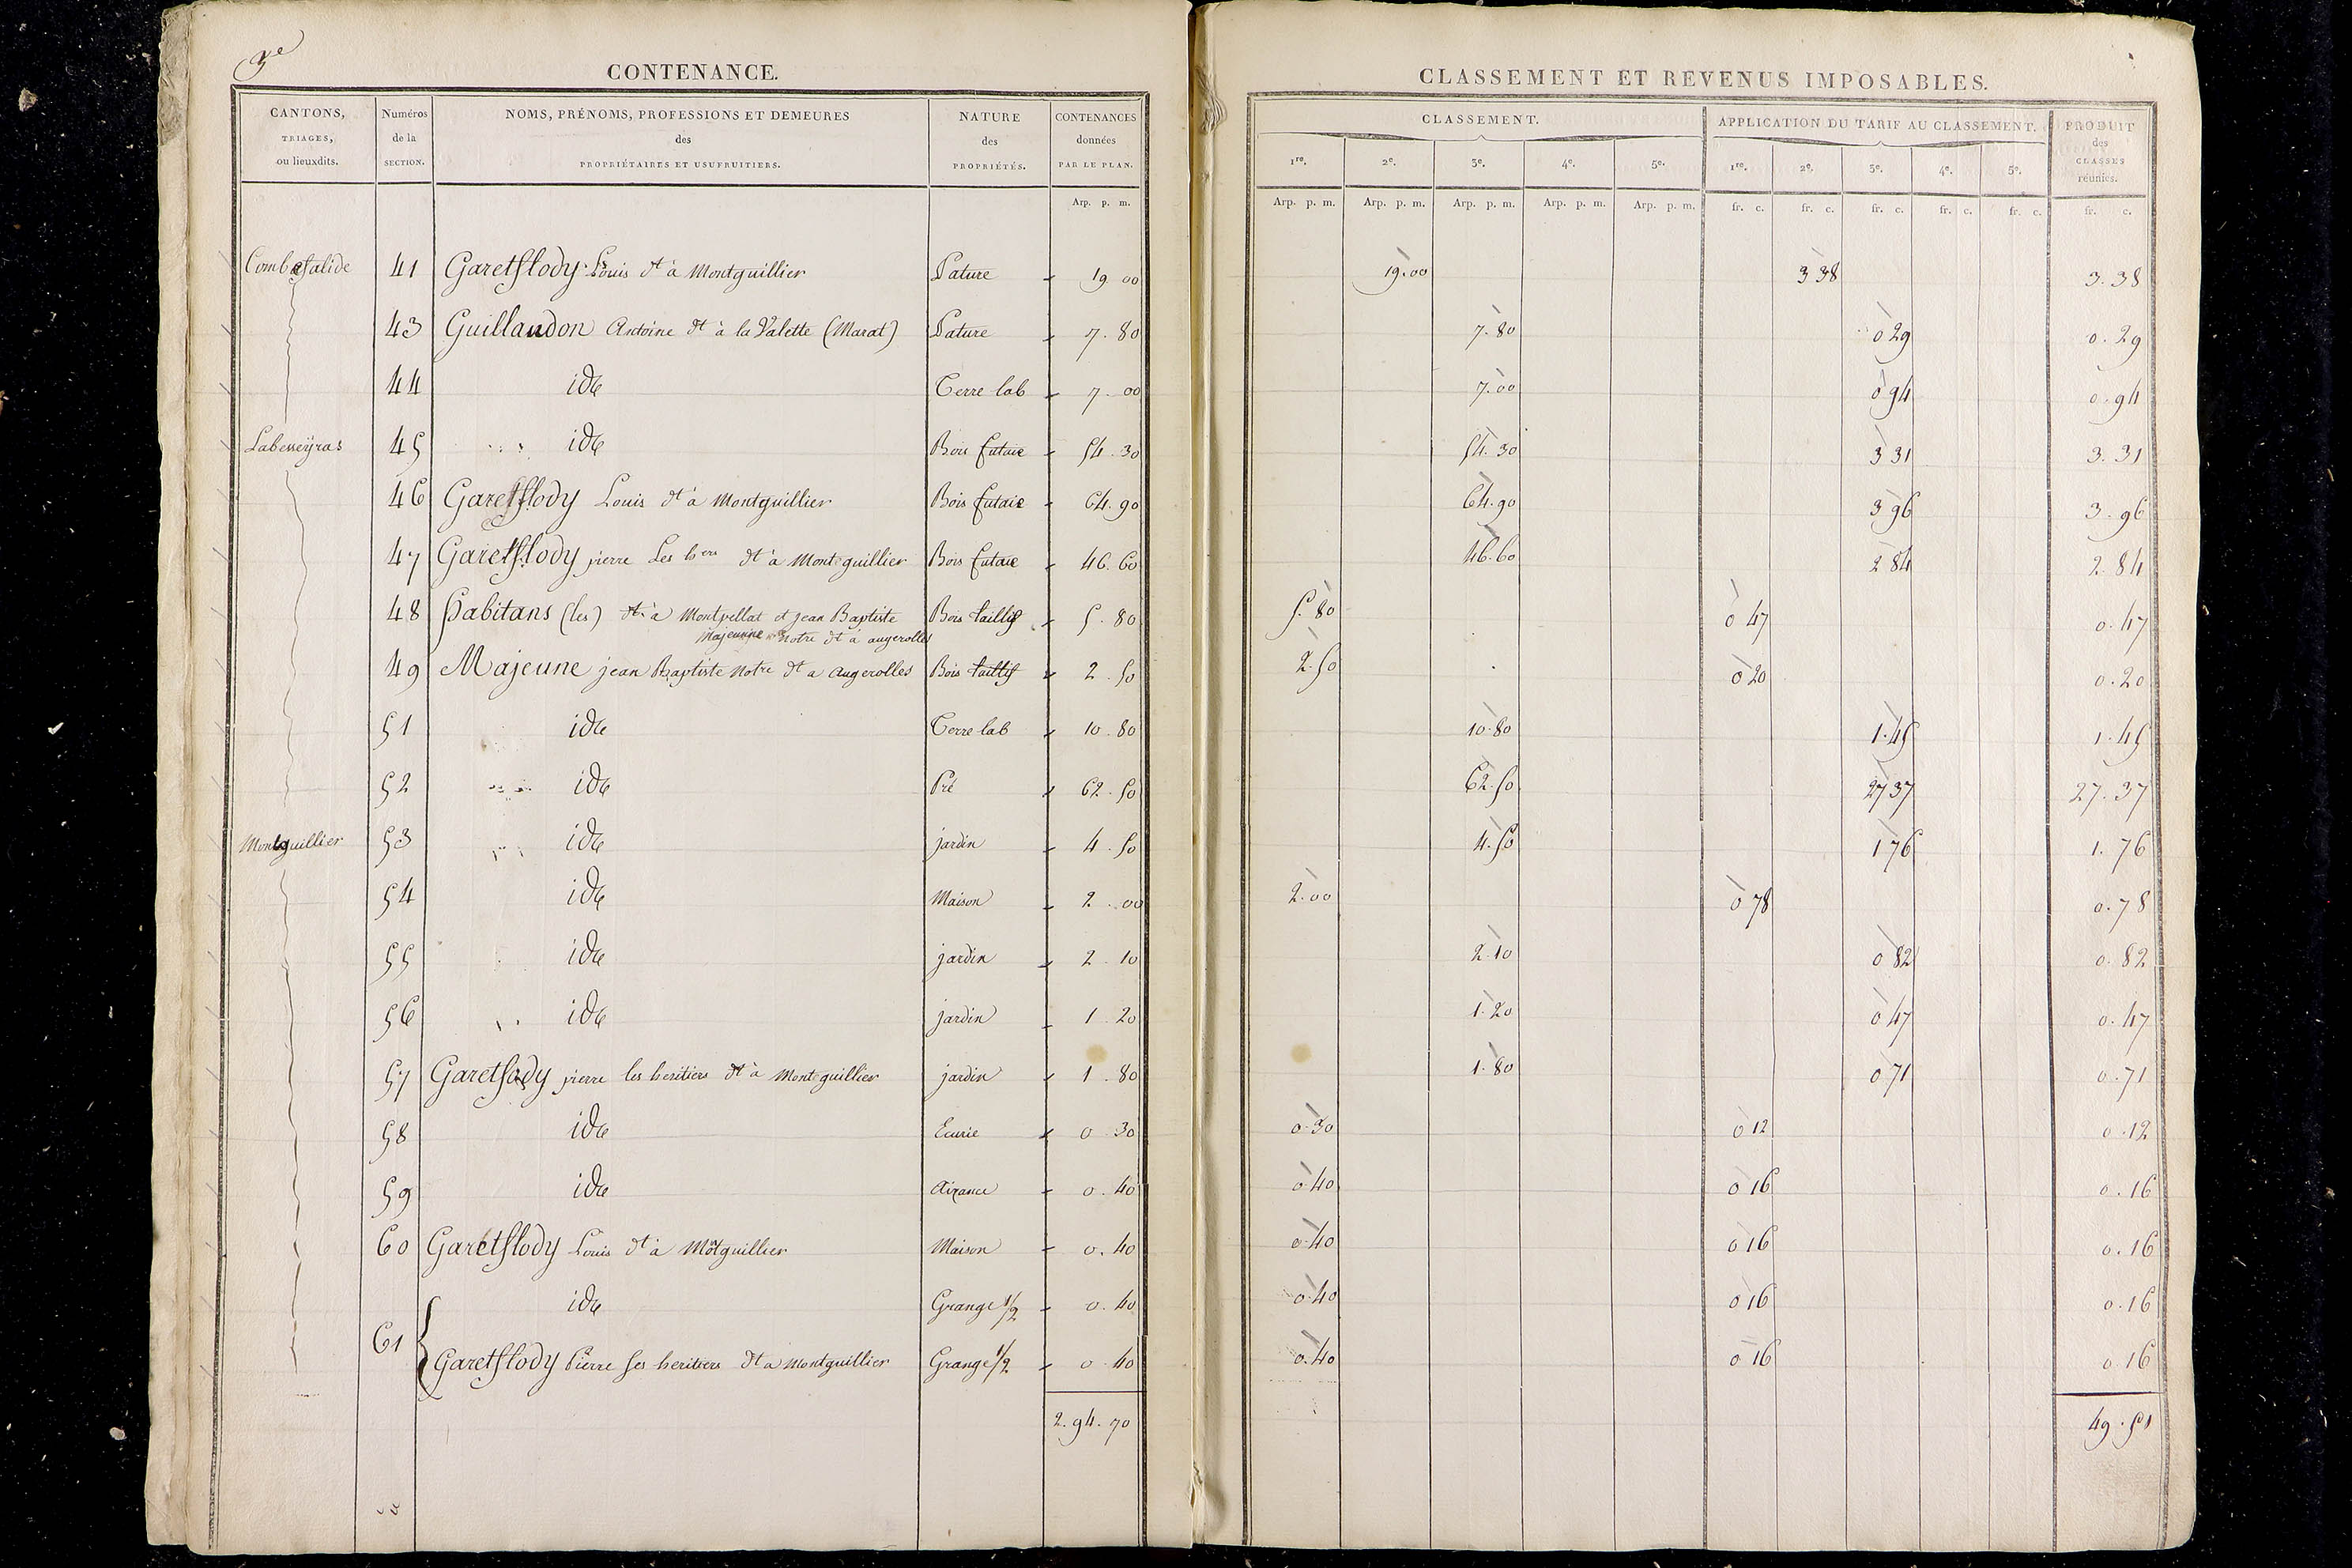 3e
CONTENANCE.
CANTONS, TRIAGES, ou lieuxdits.
Numéros de la SECTION.
NOMS, PRÉNOMS, PROFESSIONS ET DEMEURES des PROPRIÉTAIRES ET USUFRUITIERS.
NATURE des PROPRIÉTÉS.
CONTENANCES données PAR LE PLAN.
Arp. p. m.
Combefalide 41 Garetflody Louis dt à Montguillier Pature 19 00
43 Guillaudon Antoine dt à la Valette (Marat) Pature 7. 80
44 ide Terre lab 7. 00
Labesseÿras 45 ide Bois futaie 54. 30
46 Garetflody Louis dt à Montguillier Bois futaie 64. 90
47 Garetflody pierre Les hers dt à Montguillier Bois futaie 46. 60
48 habitans (les) dt à Montpellat et jean Baptiste Bois taillif 5. 80
Majeune Notre dt à augerolles
49 Majeune jean Baptiste Notre dt a augerolles Bois taillif 2. 50
51 ide Terre lab 10. 80
52 ide Pré 62. 50
Montguillier 53 ide jardin 4. 50
54 ide Maison 2. 00
55 ide jardin 2. 10
56 ide jardin 1. 20
57 Garetflody pierre les heritiers dt à Montguillier jardin 1. 80
58 ide Ecurie 0. 30
59 ide Aizance 0. 40
60 Garetflody Louis dt à Motguillier Maison 0. 40
61 ide Grange 1/2 0. 40
Garetflody Pierre ses heritiers dt a Montguillier Grange 1/2 0 40
2. 94. 70
CLASSEMENT ET REVENUS IMPOSABLES.
CLASSEMENT.
APPLICATION DU TARIF AU CLASSEMENT.
PRODUIT des CLASSES réunies.
1re. 2e. 3e. 4e. 5e. 1re. 2e. 3e. 4e. 5e.
Arp. p. m. Arp. p. m. Arp. p. m. Arp. p. m. Arp. p. m. fr. c. fr. c. fr. c. fr. c. fr. c. fr. c.
19.00 3 38 3. 38
7. 80 0 29 0. 29
7. 00 0 94 0. 94
54. 30 3 31 3. 31
64. 90 3 96 3. 96
46. 60 2 84 2. 84
5. 80 0 47 0. 47
2. 50 0 20 0. 20
10. 80 1. 45 1. 45
62. 50 27 37 27. 37
4. 50 1 76 1. 76
2. 00 0 78 0. 78
2. 10 0 82 0. 82
1. 20 0 47 0. 47
1. 80 0 71 0. 71
0. 30 0 12 0. 12
0. 40 0 16 0. 16
0. 40 0 16 0. 16
0. 40 0 16 0. 16
0. 40 0 16 0. 16
49. 51